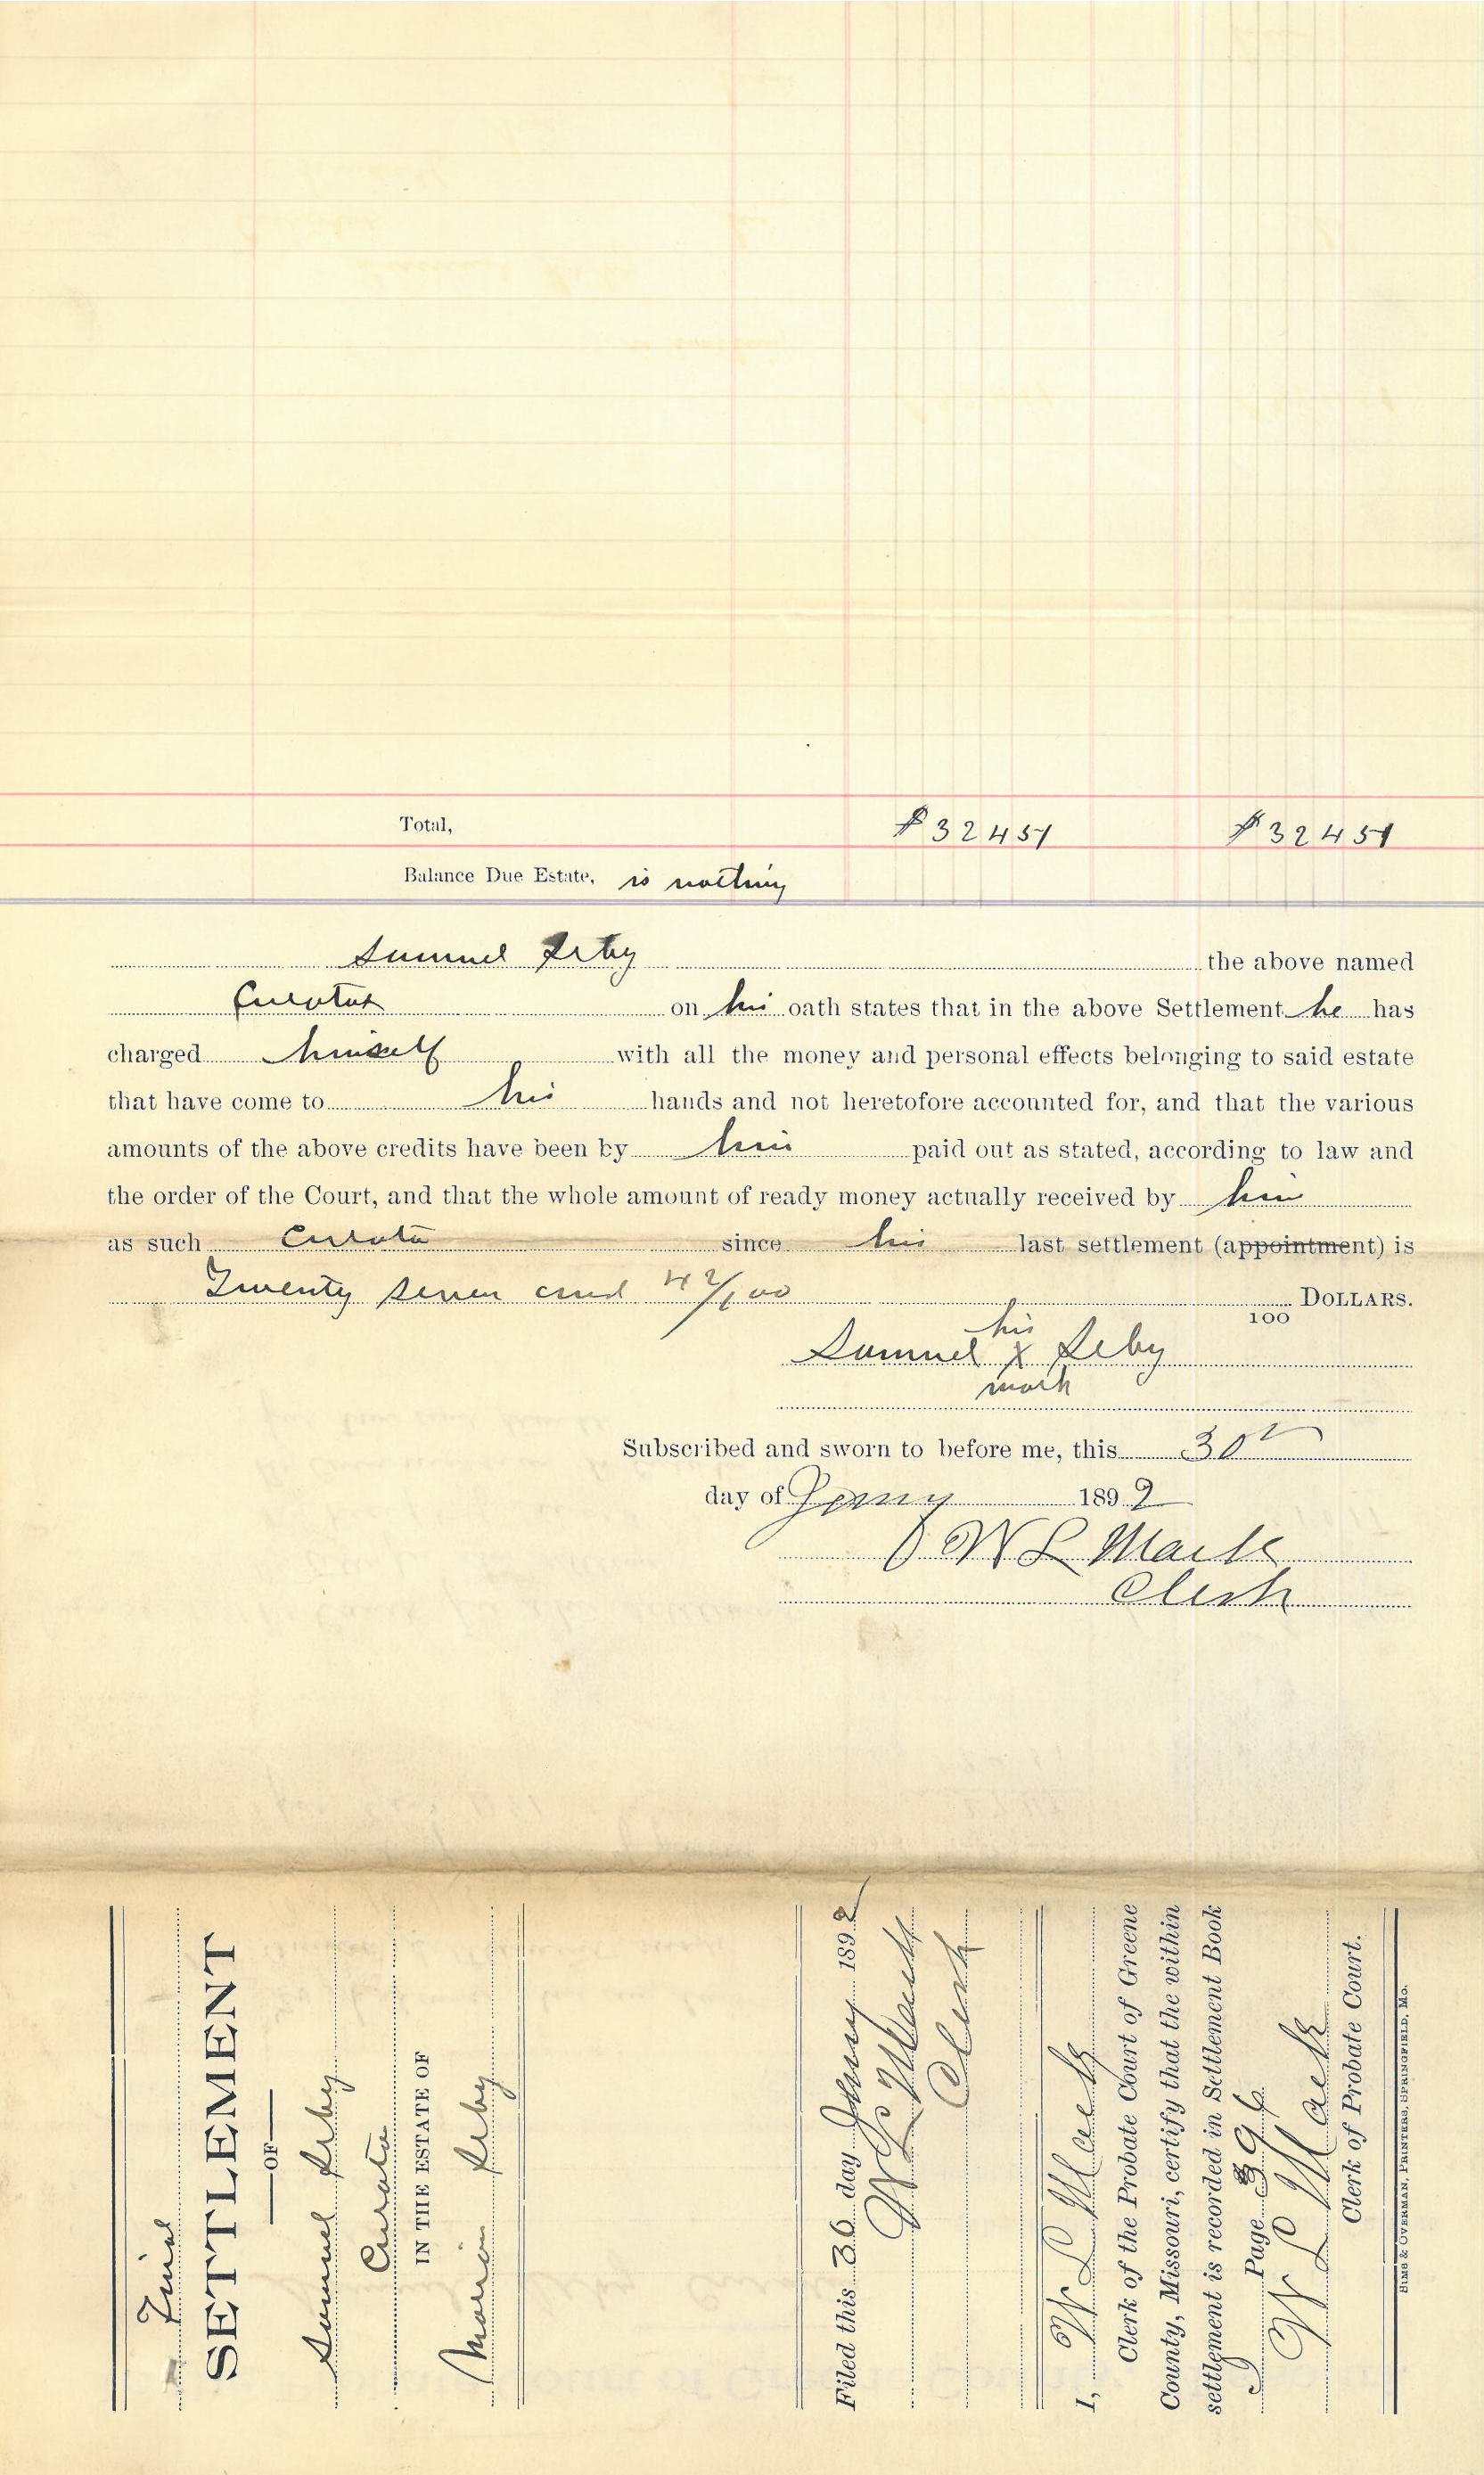 Total, $ 324 51 $ 324 51
Balance Due Estate, is nothing
Samuel Seby the above named
Curator on his oath states that in the above Settlement he has
charged himself with all the money and personal effects belonging to said estate
that have come to his hands and not heretofore accounted for, and that the various
amounts of the above credits have been by him paid out as stated, according to law and
the order of the Court, and that the whole amount of ready money actually received by him
as such Curator since his last settlement (appointment) is
Twenty seven and 42/100 100 DOLLARS.
his
Samuel X Seby
mark
Subscribed and sworn to before me, this 30th
day of Jany 1892
W L Mack
Clerk
Final
SETTLEMENT
OF
Samuel Seby
Curator
IN THE ESTATE OF
Marion Seby
Filed this 30 day Jany 1892
W L Mack
Clerk
I, W L Mack
Clerk of the Probate Court of Greene
County, Missouri, certify that the within
settlement is recorded in Settlement Book
J Page 396
W L Mack
Clerk of Probate Court.
SIMS & OVERMAN, PRINTERS, SPRINGFIELD, MO.